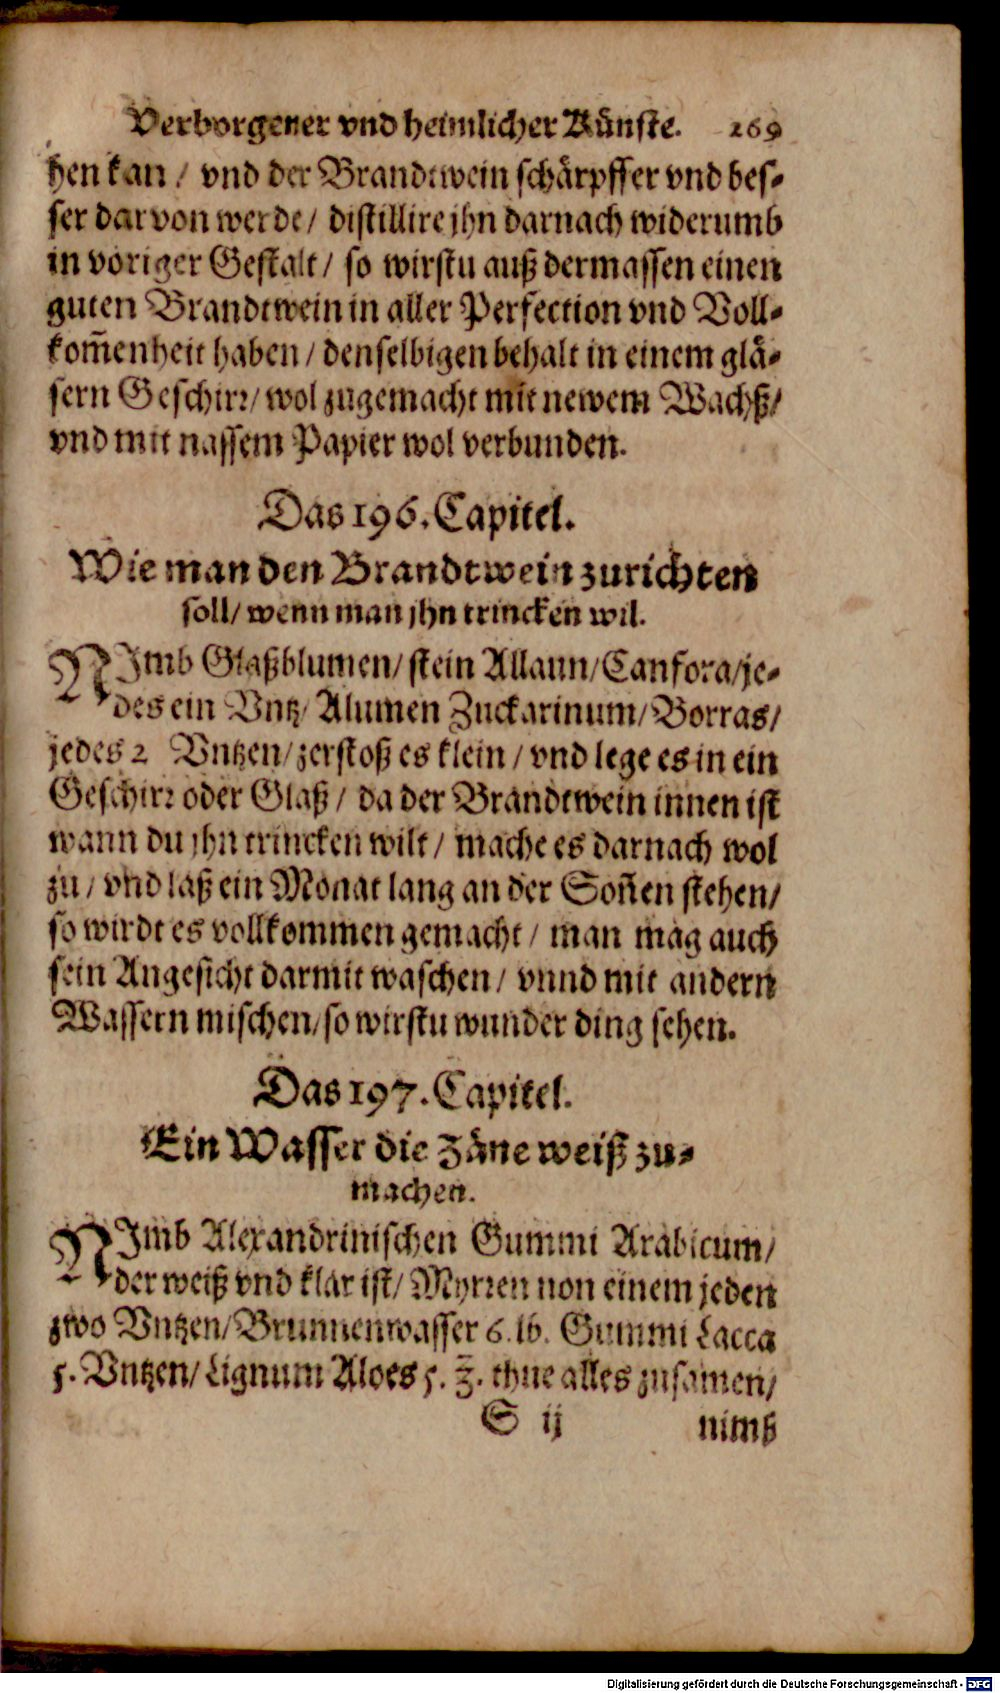 Verborgener vnd heimlicher Künste. 269
hen kan / vnd der Brandtwein schärpffer vnd bes-
ser darvon werde / distillire jhn darnach widerumb
in voriger Gestalt / so wirstu auß dermassen einen
guten Brandtwein in aller Perfection vnd Voll-
kom̃enheit haben / denselbigen behalt in einem glä-
sern Geschirr / wol zugemacht mit newem Wachß /
vnd mit nassem Papier wol verbunden.
Das 196. Capitel.
Wie man den Brandtwein zurichten
soll / wenn man jhn trincken wil.
NImb Glaßblumen / stein Allaun / Canfora / je-
des ein Vntz / Alumen Zuckarinum / Borras /
jedes 2 Vntzen / zerstoß es klein / vnd lege es in ein
Geschirr oder Glaß / da der Brandtwein innen ist
wann du jhn trincken wilt / mache es darnach wol
zu / vnd laß ein Monat lang an der Soñen stehen /
so wirdt es vollkommen gemacht / man mag auch
sein Angesicht darmit waschen / vnnd mit andern
Wassern mischen / so wirstu wunder ding sehen.
Das 197. Capitel.
Ein Wasser die Zäne weiß zu-
machen.
NImb Alexandrinischen Gummi Arabicum /
der weiß vnd klar ist / Myrren von einem jeden
zwo Vntzen / Brunnenwasser 6. lb. Gummi Lacca
5. Vntzen / Lignum Aloes 5. ℥. thue alles zusamen /
S ij nimb
Digitalisierung gefördert durch die Deutsche Forschungsgemeinschaft - DFG